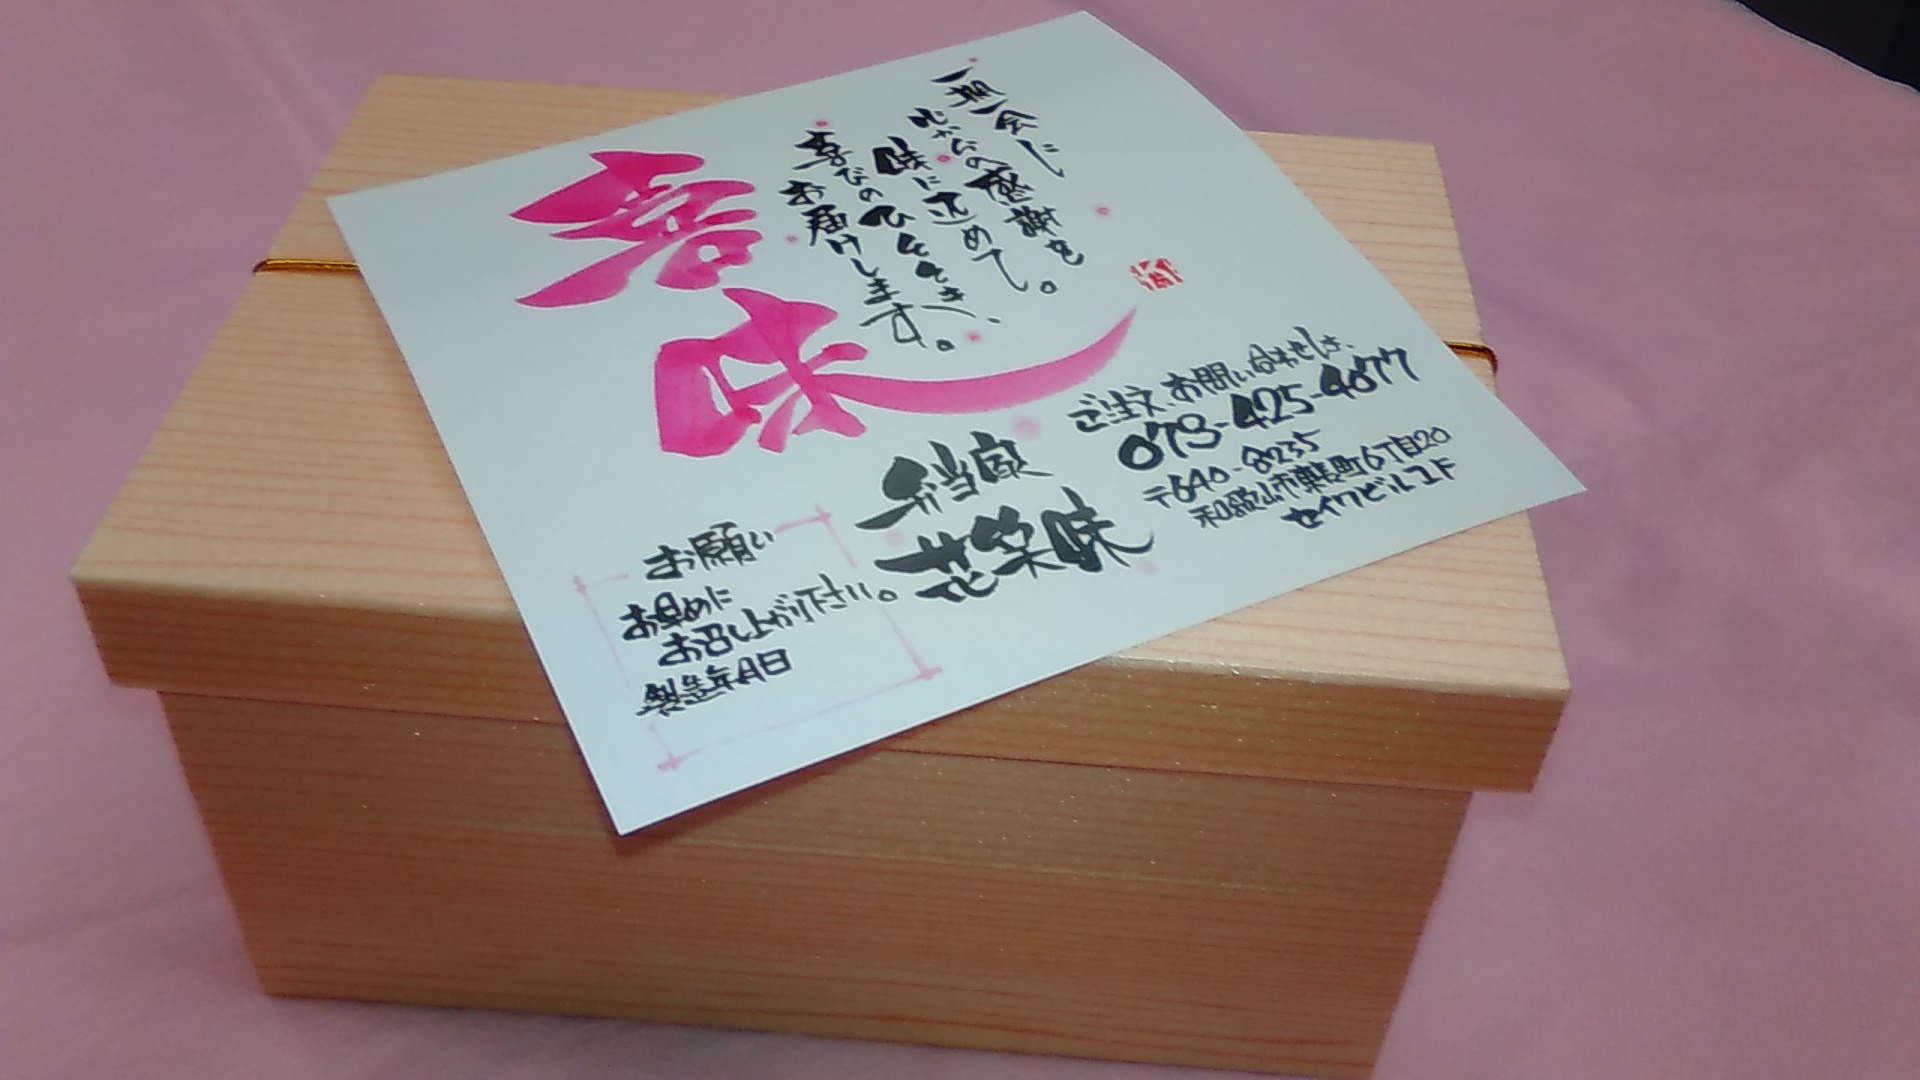 一期一会に
心からの感謝を
味に込めて。
喜びのひとときへ、
お届けします。
味
ご注文、お問い合わせは、
073-425-4077
〒640-8235
和歌山市東長町6丁目20
セイワビル1F
弁当家
花笑味
お願い
お早めに
お召し上がり下さい。
製造年月日